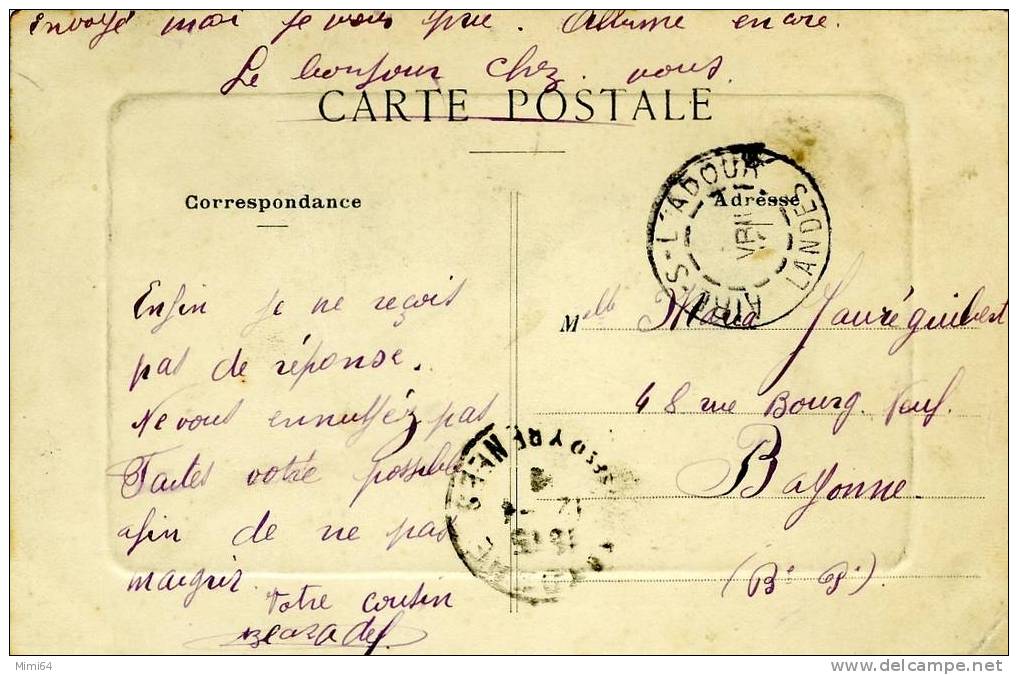 envoyé moi je vous prie. Allume encre.
Le bonjour chez vous.
CARTE POSTALE
Correspondance
Adresse
AIRE-S-L'ADOUR
LANDES
Enfin je ne reçois
pas de réponse.
Ne vous ennuyéz pas
Faites votre possible
afin de ne pas
maigrir.
Votre cousin
Melle Maria Jauréguibert
48 rue Bourg. Neuf.
Bayonne.
(Bses P.)
PYRENEES
Mimi64
www.delcampe.net